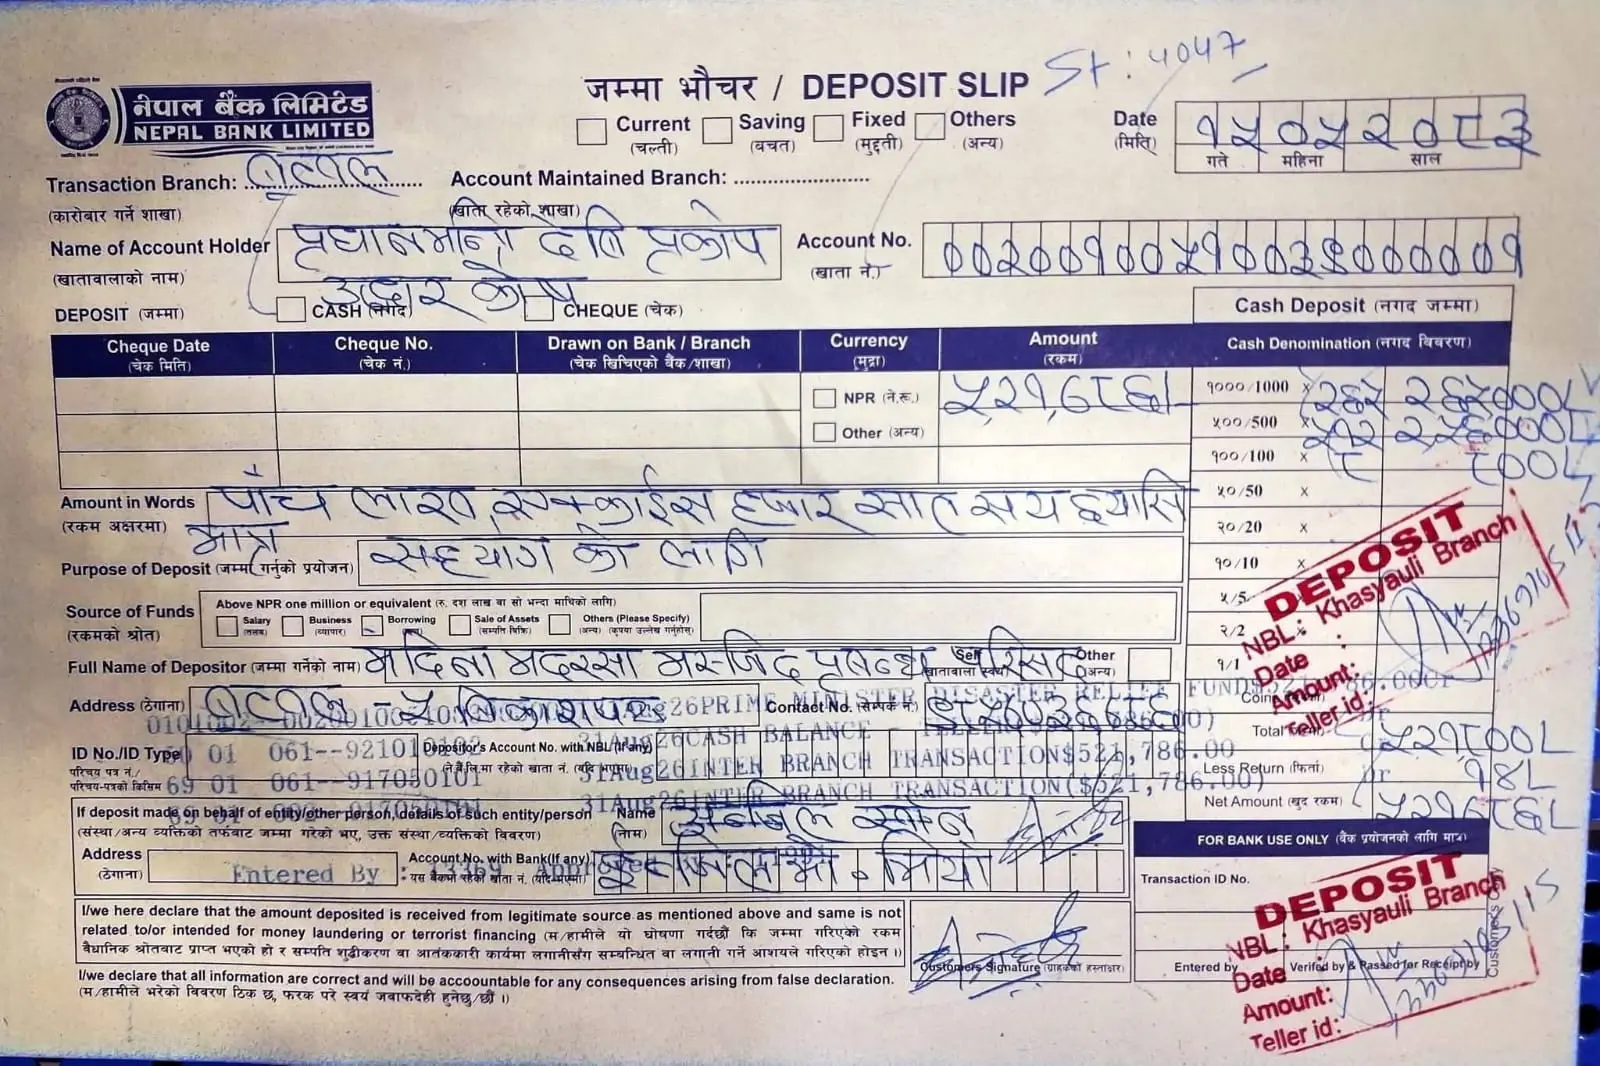 St : 4047
नेपाल बैंक लिमिटेड
NEPAL BANK LIMITED
जम्मा भौचर / DEPOSIT SLIP
Current (चल्ती) Saving (बचत) Fixed (मुद्दती) Others (अन्य)
Date (मिति) १५०५२०८३
गते महिना साल
Transaction Branch: बुटवल Account Maintained Branch:
(कारोबार गर्ने शाखा) (खाता रहेको शाखा)
Name of Account Holder प्रधानमन्त्री दैवि प्रकोप
(खातावालाको नाम) उद्दार कोष
Account No. ००२००१००५१००३९०००००१
(खाता नं.)
DEPOSIT (जम्मा) CASH (नगद) CHEQUE (चेक) Cash Deposit (नगद जम्मा)
Cheque Date (चेक मिति) Cheque No. (चेक नं.) Drawn on Bank / Branch (चेक खिचिएको बैंक/शाखा) Currency (मुद्रा) Amount (रकम) Cash Denomination (नगद विवरण)
NPR (ने.रू.) ५२१,७८६/- १०००/1000 x २६५ २६५०००/-
Other (अन्य) ५००/500 x ५१२ २५६०००/-
१००/100 x ८ ८००/-
५०/50 x
२०/20 x
१०/10 x
५/5
२/2 x
१/1
Amount in Words पाँच लाख एक्काईस हजार सात सय छयासि
(रकम अक्षरमा) मात्र
Purpose of Deposit (जम्मा गर्नुको प्रयोजन) सहयोग को लागि
Source of Funds (रकमको श्रोत) Above NPR one million or equivalent (रु. दश लाख वा सो भन्दा माथिको लागि)
Salary (तलब) Business (व्यापार) Borrowing Sale of Assets (सम्पति बिक्रि) Others (Please Specify) (अन्य) (कृपया उल्लेख गर्नुहोस्)
Full Name of Depositor (जम्मा गर्नेको नाम) मदिना मदरसा मस्जिद प्रबन्ध परिसद Self (खातावाला स्वयं) Other (अन्य)
Address (ठेगाना) बुटवल -५ बिकाशपथ Contact No. (सम्पर्क नं.)
31Aug26PRIME MINISTER DISASTER RELIEF FUND$521,786.00Cr
31Aug26CASH BALANCE
Total Dr ५२१८००/-
ID No./ID Type Depositor's Account No. with NBL (If any)
01 061--921010102 31Aug26INTER BRANCH TRANSACTION$521,786.00
परिचय पत्र नं./ परिचय-पत्रको किसिम (ने.बै.लि.मा रहेको खाता नं. (यदि भएमा)
69 01 061--917050101 31Aug26INTER BRANCH TRANSACTION($521,786.00)
Less Return (फिर्ता) १४/-
Net Amount (खुद रकम) ५२१७८६/-
If deposit made on behalf of entity/other person, details of such entity/person Name
(संस्था/अन्य व्यक्तिको तर्फबाट जम्मा गरेको भए, उक्त संस्था/व्यक्तिको विवरण) (नाम)
Address (ठेगाना) Entered By : 13369 Account No. with Bank(If any)
यस बैंकमा रहेको खाता नं. (यदि भएमा)
I/we here declare that the amount deposited is received from legitimate source as mentioned above and same is not
related to/or intended for money laundering or terrorist financing (म/हामीले यो घोषणा गर्दछौं कि जम्मा गरिएको रकम
वैधानिक श्रोतबाट प्राप्त भएको हो र सम्पति शुद्धीकरण वा आतंककारी कार्यमा लगानीसँग सम्बन्धित वा लगानी गर्ने आशयले गरिएको होइन ।)
I/we declare that all information are correct and will be accountable for any consequences arising from false declaration.
(म/हामीले भरेको विवरण ठिक छ, फरक परे स्वयं जवाफदेही हुनेछु/छौं ।)
Customers Signature (ग्राहकको हस्ताक्षर)
FOR BANK USE ONLY (बैंक प्रयोजनको लागि मात्र)
Transaction ID No.
Entered by Verifed by & Passed for Receipt by
Customer's Copy
DEPOSIT
NBL: Khasyauli Branch
Date :
Amount:
Teller id:
DEPOSIT
NBL: Khasyauli Branch
Date
Amount:
Teller id: